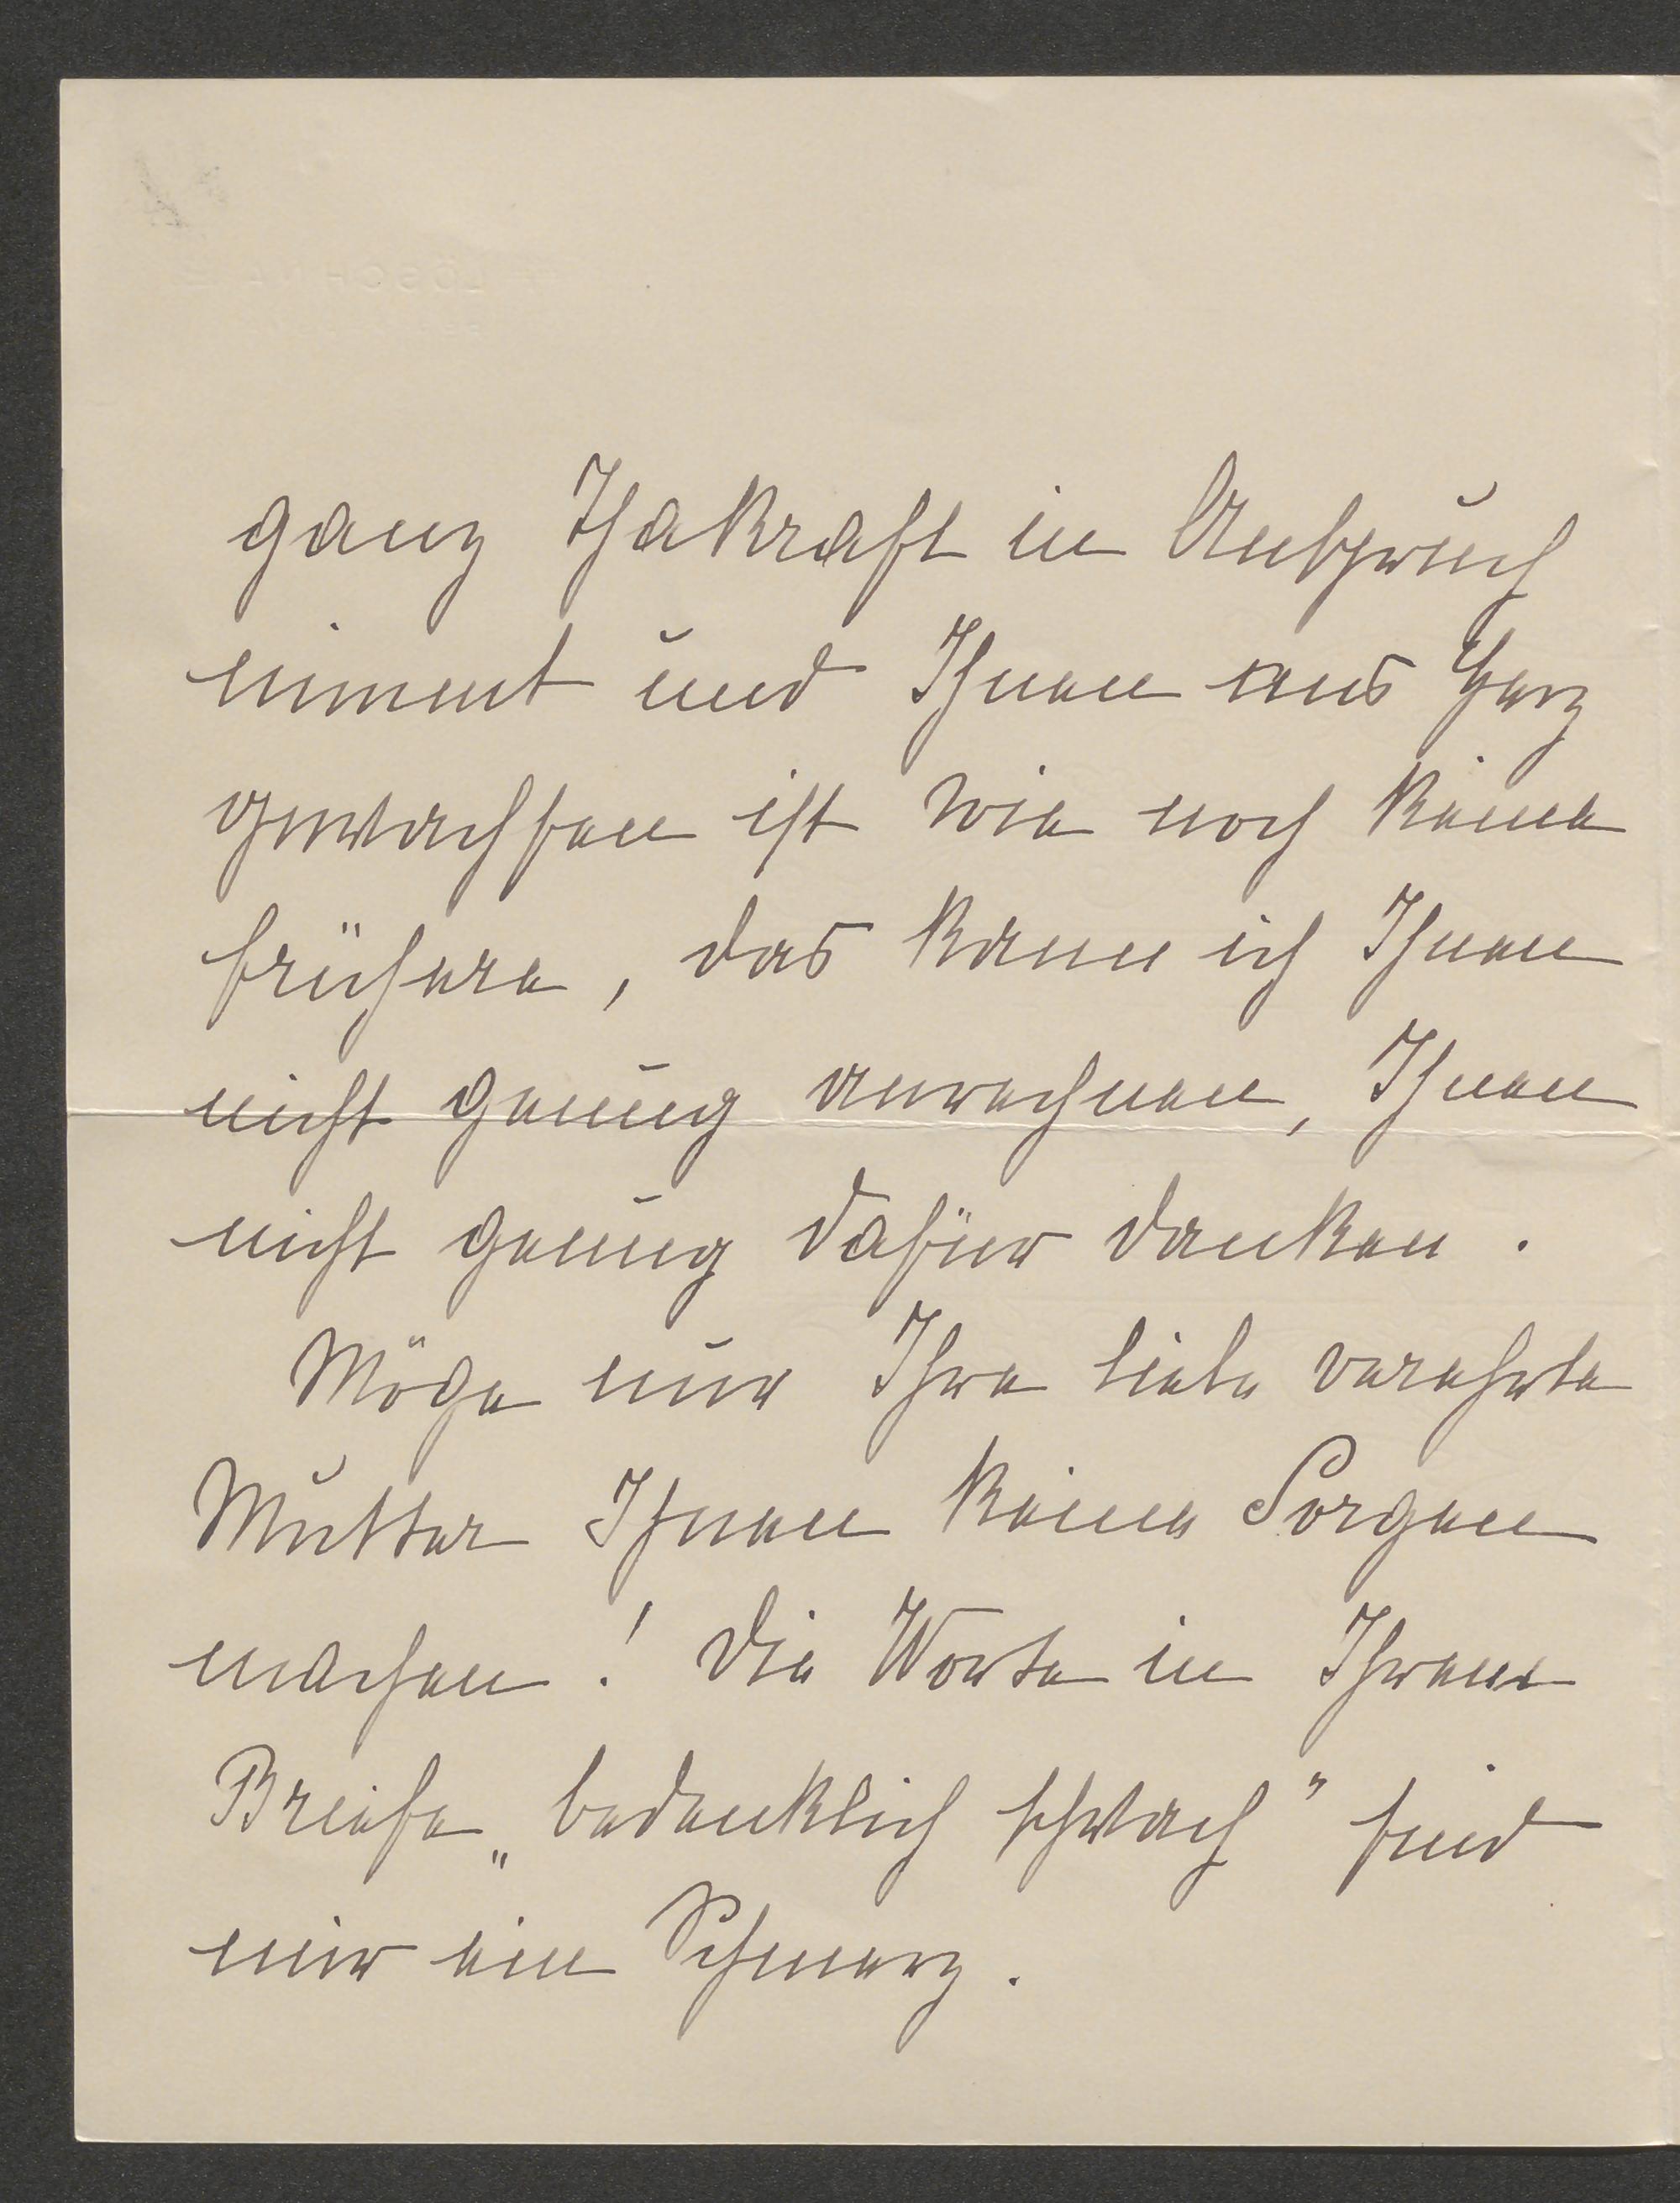 ganz Thakraft in Anspruch
nimmt und Ihnen ans Herz
gewachsen ist wie noch keine
frühere, das kann ich Ihnen
nicht genug anrechnen, Ihnen
nicht genug dafür danken.
Möge nur Ihre liebe verehrte
Mutter Ihnen keine Sorgen
machen! Die Worte in Ihrem
Briefe „bedenklich schwach" sind
mir ein Schmerz.